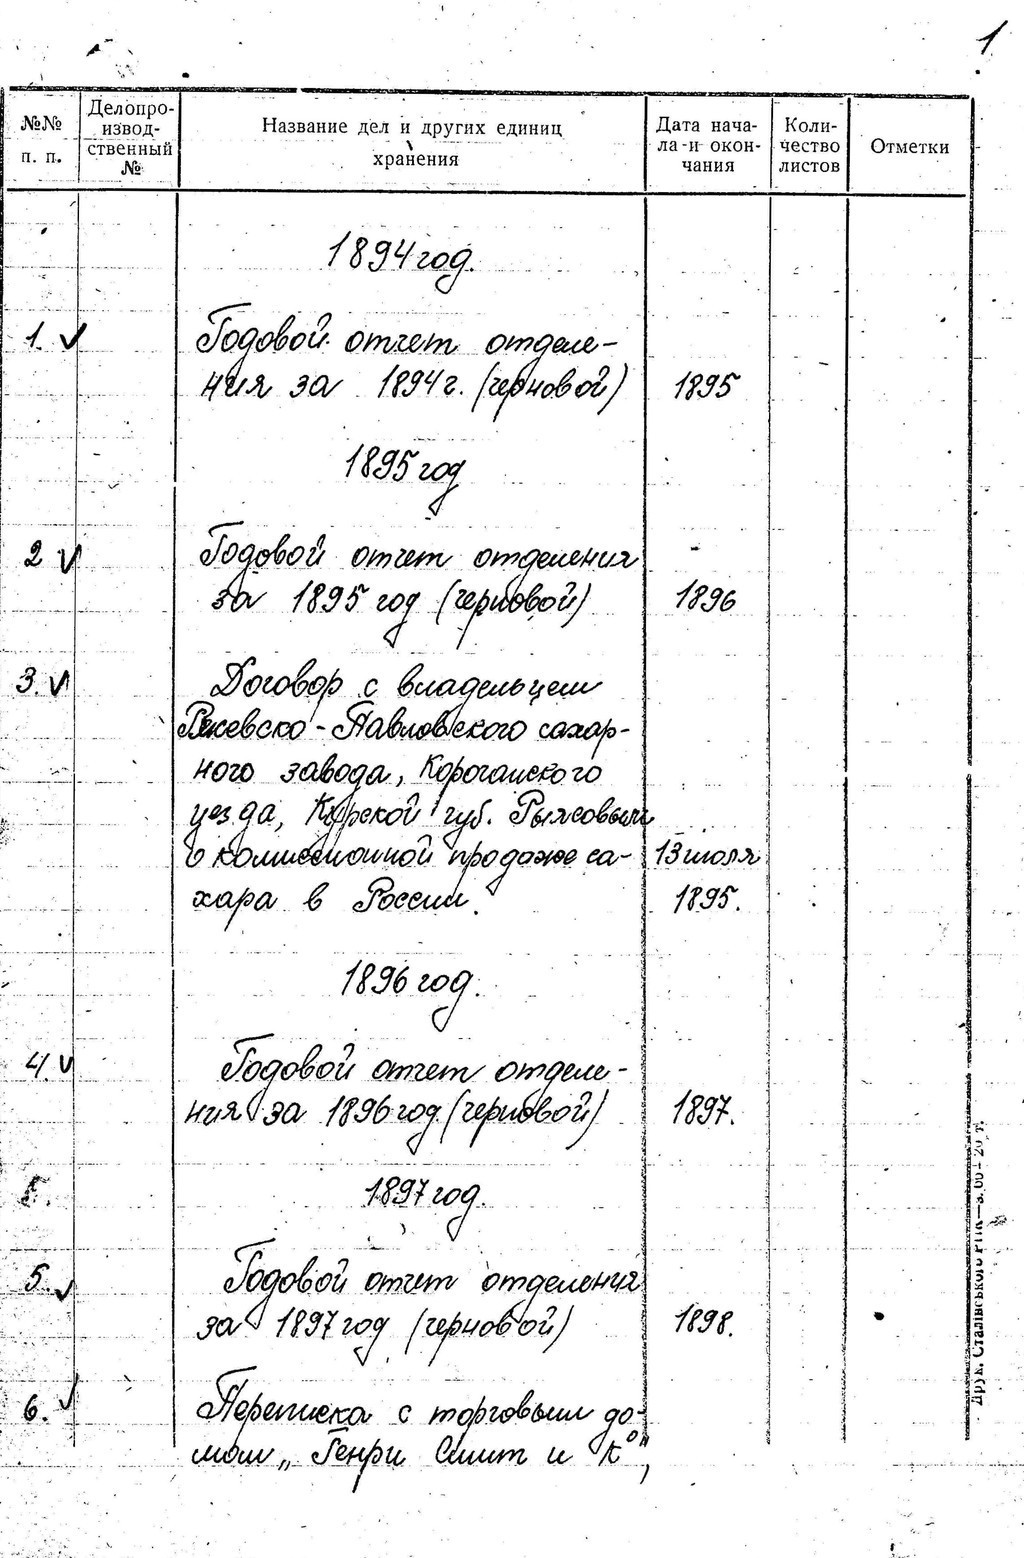 1
№№ п. п.
Делопроизвод-
ственный №
Название дел и других единиц
хранения
Дата нача-
ла и окон-
чания
Коли-
чество
листов
Отметки
1894 год.
1. Годовой отчет отделе-
ния за 1894 г. (черновой) 1895
1895 год
2 Годовой отчет отделения
за 1895 год (черновой) 1896
3. Договор с владельцем
Ржевско-Павловского сахар-
ного завода, Корочанского
уезда, Курской губ.
о комиссионной продаже са- 13 июля
хара в России. 1895.
1896 год.
4. Годовой отчет отделе-
ния за 1896 год (черновой) 1897.
1897 год.
5. Годовой отчет отделения
за 1897 год (черновой) 1898.
6. Переписка с торговым до-
мом „Генри Смит и К°",
Друк. Сталінського